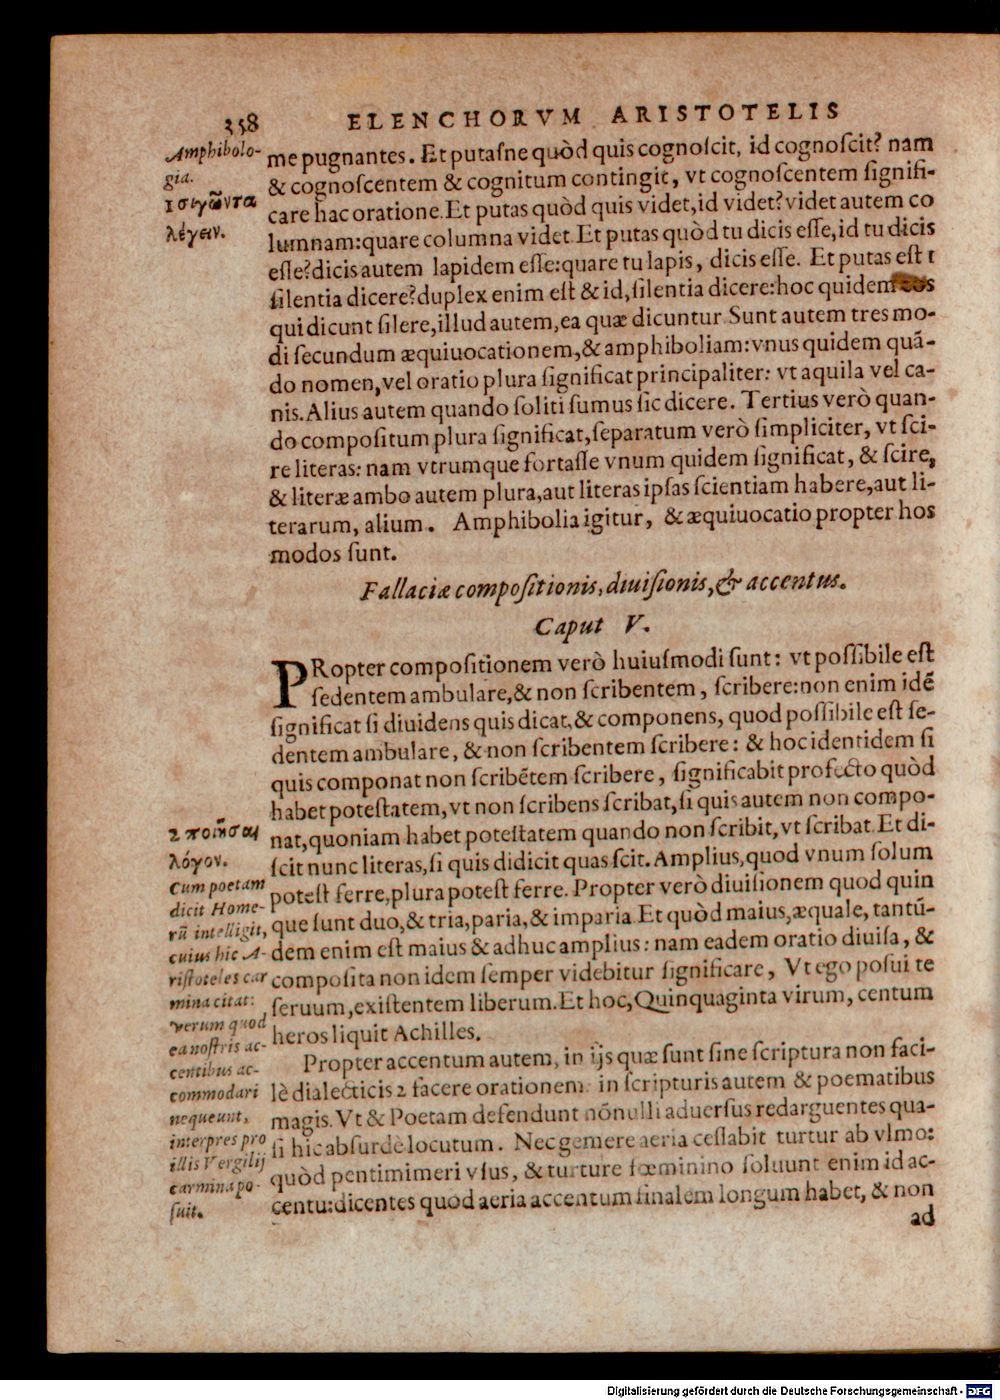 358 ELENCHORVM ARISTOTELIS
Amphibolo-
gia.
1 σιγῶντα
λέγειν.
me pugnantes. Et putasne quòd quis cognoscit, id cognoscit? nam
& cognoscentem & cognitum contingit, vt cognoscentem signifi-
care hac oratione. Et putas quòd quis videt, id videt? videt autem co
lumnam: quare columna videt. Et putas quòd tu dicis esse, id tu dicis
esse? dicis autem lapidem esse: quare tu lapis, dicis esse. Et putas est 1
silentia dicere? duplex enim est & id, silentia dicere: hoc quidem eos
qui dicunt silere, illud autem, ea quæ dicuntur. Sunt autem tres mo-
di secundum æquiuocationem, & amphiboliam: vnus quidem quā-
do nomen, vel oratio plura significat principaliter: vt aquila vel ca-
nis. Alius autem quando soliti sumus sic dicere. Tertius verò quan-
do compositum plura significat, separatum verò simpliciter, vt sci-
re literas: nam vtrumque fortasse vnum quidem significat, & scire,
& literæ ambo autem plura, aut literas ipsas scientiam habere, aut li-
terarum, alium. Amphibolia igitur, & æquiuocatio propter hos
modos sunt.
Fallaciæ compositionis, diuisionis, & accentus.
Caput V.
PRopter compositionem verò huiusmodi sunt: vt possibile est
sedentem ambulare, & non scribentem, scribere: non enim idē
significat si diuidens quis dicat, & componens, quod possibile est se-
dentem ambulare, & non scribentem scribere: & hoc identidem si
quis componat non scribētem scribere, significabit profecto quòd
habet potestatem, vt non scribens scribat, si quis autem non compo-
nat, quoniam habet potestatem quando non scribit, vt scribat. Et di-
scit nunc literas, si quis didicit quas scit. Amplius, quod vnum solum
potest ferre, plura potest ferre. Propter verò diuisionem quod quin
que sunt duo, & tria, paria, & imparia. Et quòd maius, æquale, tantū-
dem enim est maius & adhuc amplius: nam eadem oratio diuisa, &
composita non idem semper videbitur significare, Vt ego posui te
seruum, existentem liberum. Et hoc, Quinquaginta virum, centum
heros liquit Achilles.
2 ποιῆσαι
λόγον.
Cum poetam
dicit Home-
rū intelligit,
cuius hic A-
ristoteles car
mina citat:
verum quod
ea nostris ac-
centibus ac-
commodari
nequeunt,
interpres pro
illis Vergilij
carmina po-
suit.
Propter accentum autem, in ijs quæ sunt sine scriptura non faci-
lè dialecticis 2 facere orationem: in scripturis autem & poematibus
magis. Vt & Poetam defendunt nōnulli aduersus redarguentes qua-
si hic absurdè locutum. Nec gemere aeria cessabit turtur ab vlmo:
quòd pentimimeri vsus, & turture fœminino soluunt enim id ac-
centu: dicentes quod aeria accentum finalem longum habet, & non
ad
Digitalisierung gefördert durch die Deutsche Forschungsgemeinschaft - DFG